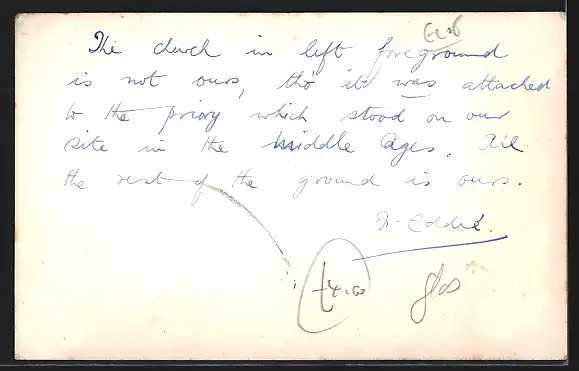 The church in left foreground
is not ours, tho' it was attached
to the priory which stood on our
site in the Middle Ages. All
the rest of the ground is ours.
Fr. Eddie.
£4.00
glos